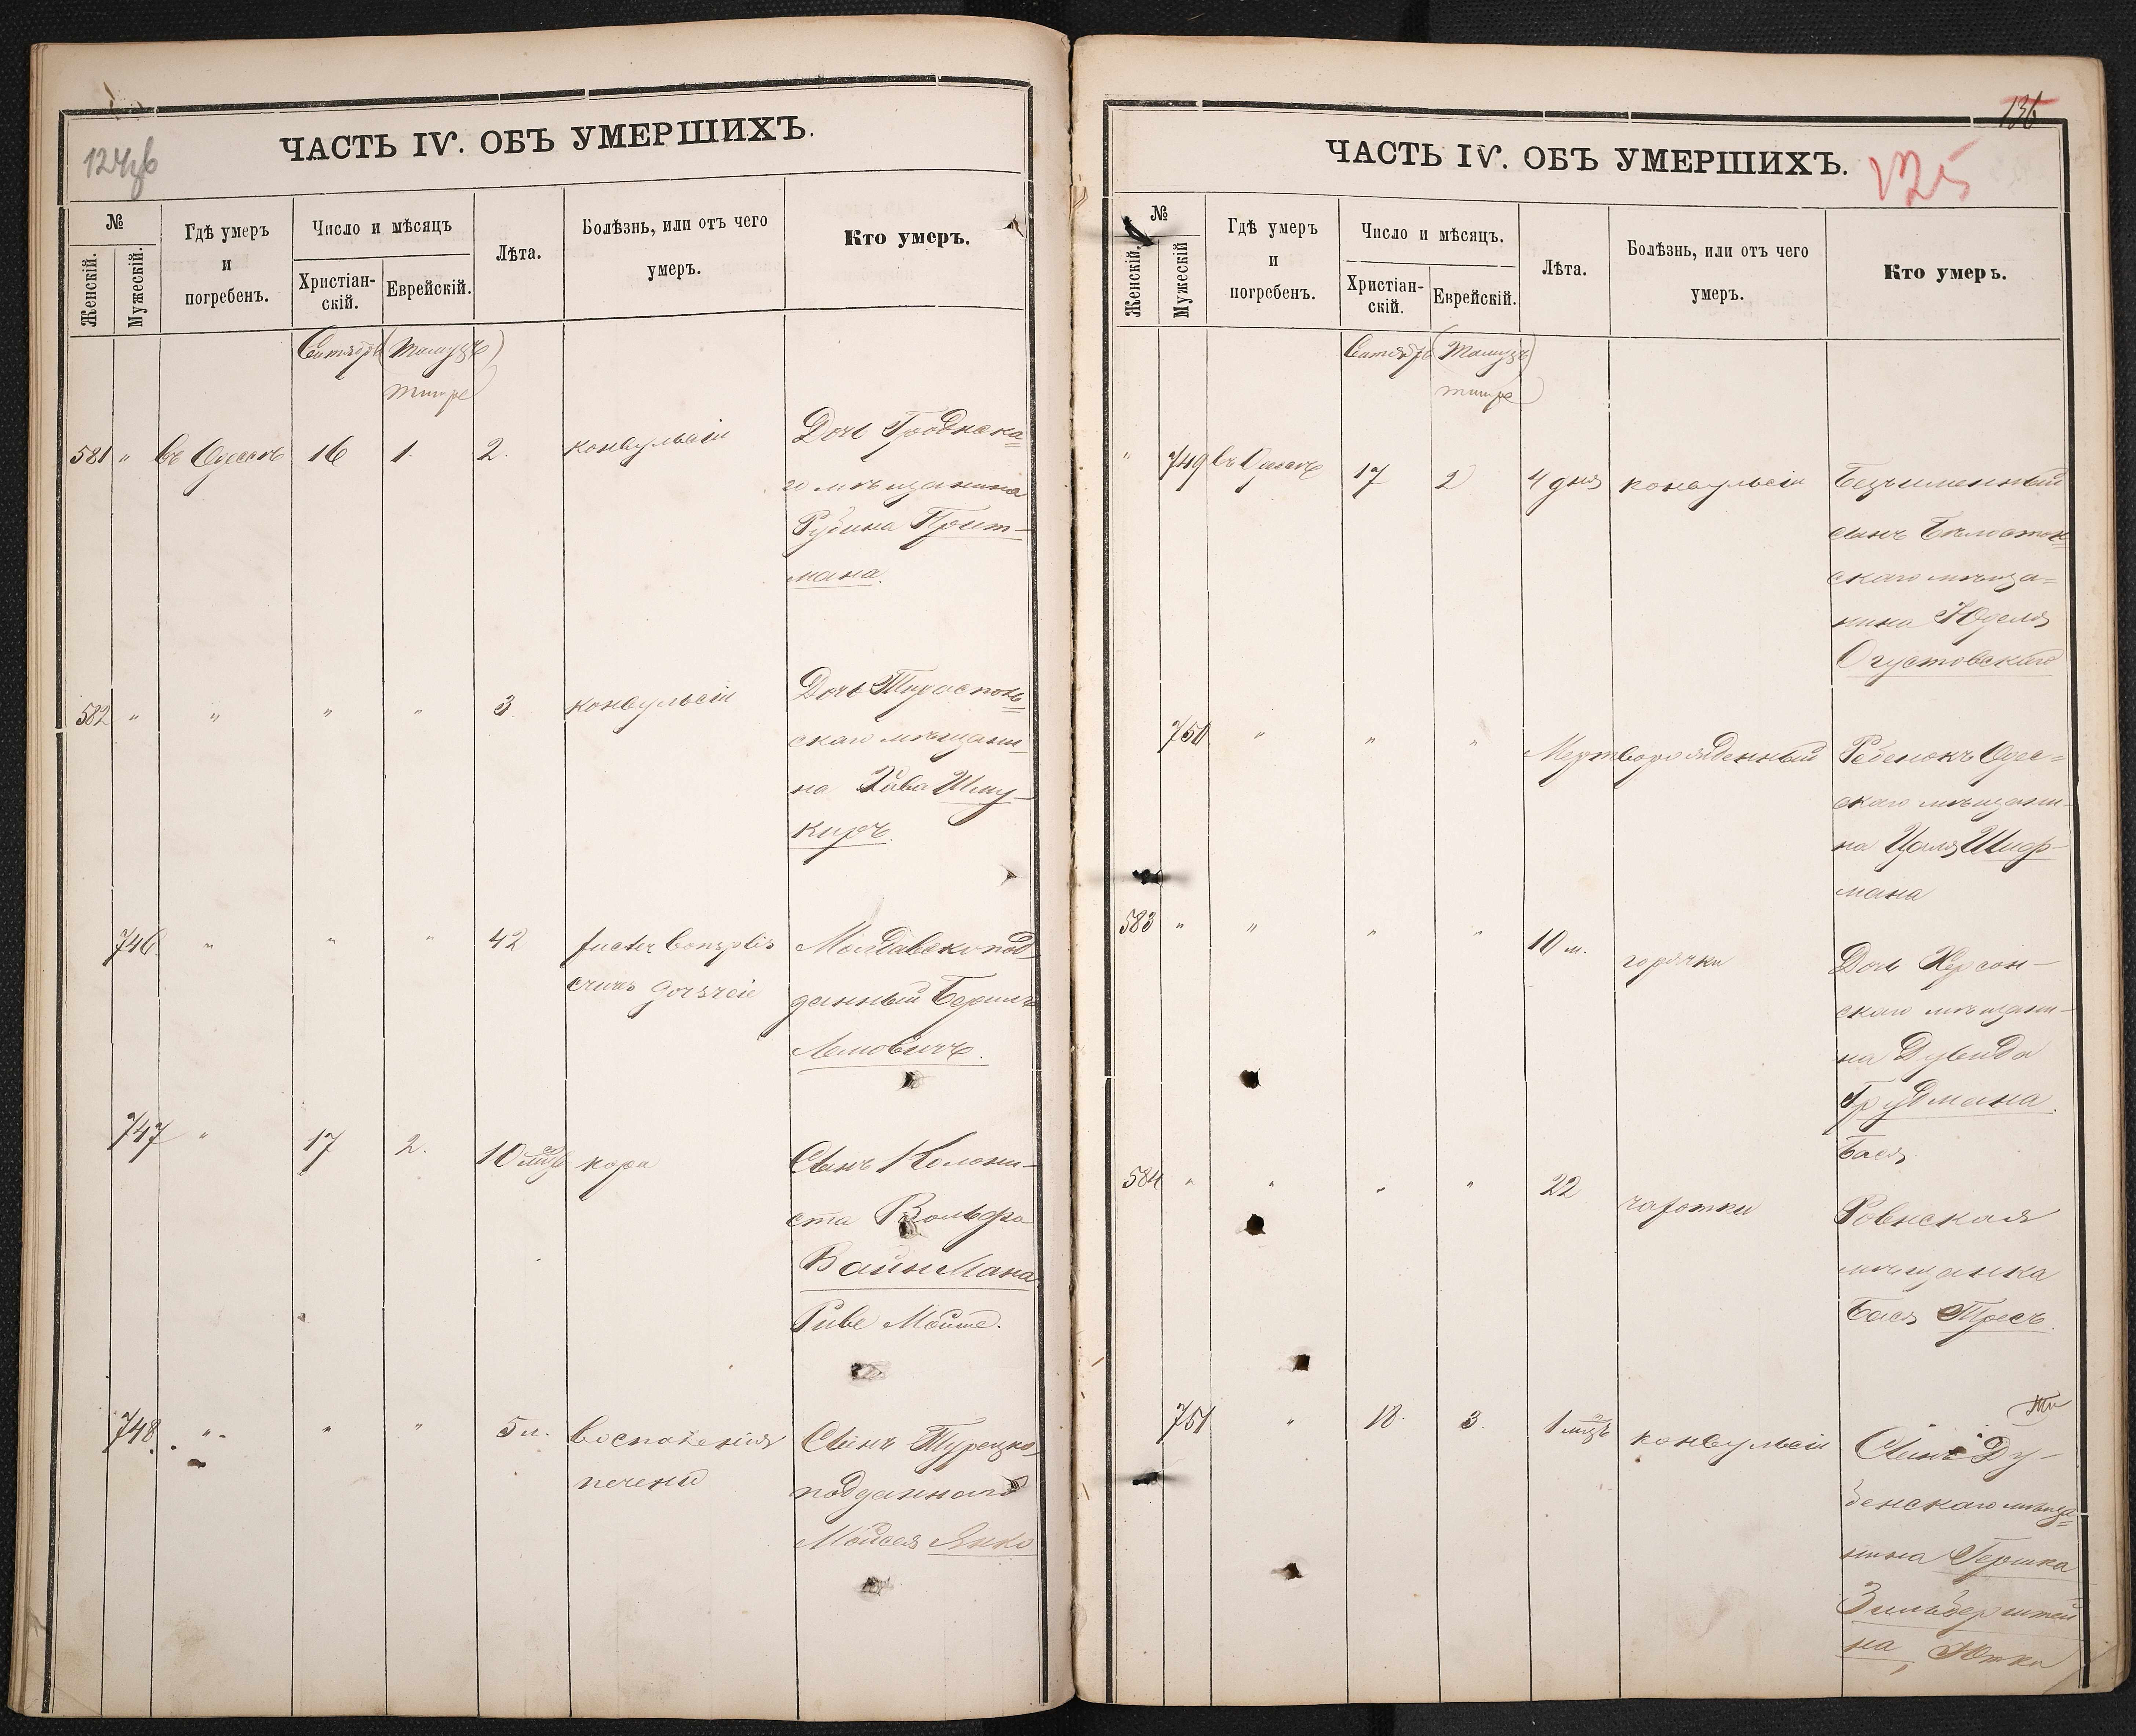 124
ЧАСТЬ IV. ОБЪ УМЕРШИХЪ.
№
Женскій.
Мужескій.
Гдѣ умеръ
и
погребенъ.
Число и мѣсяцъ
Христіан-
скій.
Еврейскій.
Лѣта.
Болѣзнь, или отъ чего
умеръ.
Кто умеръ.
Сентябрь (Тамузъ)
тишре
581 " въ Одессѣ 16 1. 2. конвульсіи Дочь Гродненска=
го мѣщанина
Рубина Прит-
мана.
582 " " " " 3 конвульсіи Дочь Тираспол=
скаго мѣщани-
на Хива Шму-
киръ.
746. " " " 42 Молдавскопод
данный Берилъ
Лемовичъ.
747 " 17 2. 10 мсц кора Сынъ Колони-
ста Вольфа
Вайнмана
Риве Мойше.
748. " " " 5 л. Воспаленія Сынъ Турецко
печени подданнаго
Мойсея Янко
136
125
ЧАСТЬ IV. ОБЪ УМЕРШИХЪ.
№
Женскій.
Мужескій
Гдѣ умеръ
и
погребенъ.
Число и мѣсяцъ.
Христіан-
скій.
Еврейскій.
Лѣта.
Болѣзнь, или отъ чего
умеръ.
Кто умеръ.
Сентябрь (Тамузъ)
тишре
" 749 въ Одессѣ 17 2 4 дня конвульсіи Безъименный
сынъ Бѣлосток=
скаго мѣща=
нина Юделя
Огустовскаго
750 " " " Мертворожденный Ребенокъ Одес=
скаго мѣщани-
на Цаля Шиф-
мана
583 " " " " 10 м. горячки Дочь Херсон-
скаго мѣщани-
на Дувида
Грудмана.
Бася
584 " " " " 22 чахотки Ровнская
мѣщанка
Бася Тресъ.
751 " 18. 3. 1 мсцъ конвульсіи Сынъ Ду-
бенскаго мѣща=
нина Гершка
Зильберштей
на, Ютки